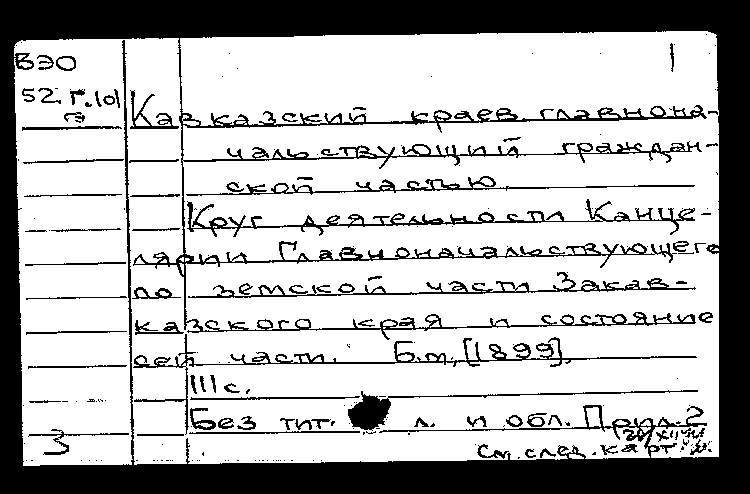 ВЭО
1
52. Г.101
Э
Кавказский краев. главнона-
чальствующий граждан-
ской частью.
Круг деятельности Канце-
лярии Главноначальствующего
по земской части Закав-
казского края и состояние
сей части. Б.м., [1899].
111 с.
Без тит. л. и обл. Прил. 2
3
См. след. карт.